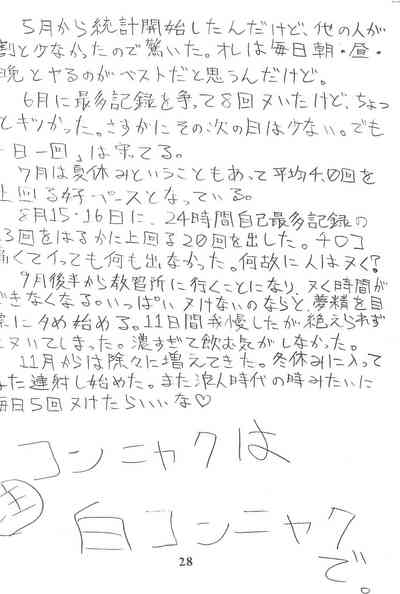 5月から統計開始したんだけど、他の人が
割と少なかったので驚いた。オレは毎日朝・昼・
晩とヤるのがベストだと思うんだけど。
6月に最多記録を争って8回ヌいたけど、ちょっ
とキツかった。さすがにその次の日は少ない。でも
一日一回」は守ってる。
7月は夏休みということもあって平均4.0回を
上回る好ペースとなっている。
8月15・16日に、24時間自己最多記録の
3回をはるかに上回る20回を出した。チロコ
痛くてイっても何も出なかった。何故に人はヌく?
9月後半から教習所に行くことになり、ヌく時間が
できなくなる。いっぱいヌけないのならと、夢精を目
標にタめ始める。11日間我慢したが絶えられず
ヌいてしまった。濃すぎて飲む気がしなかった。
11月からは除々に増えてきた。冬休みに入って
また連射し始めた。また浪人時代の時みたいに
毎日5回ヌけたらいいな♡
コンニャクは
注
白コンニャク
で。
28